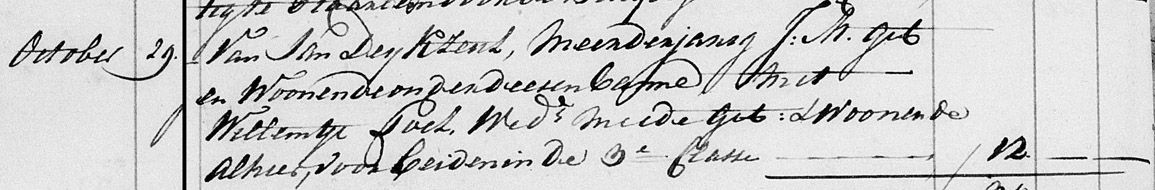 October 29. Van Jan Dey Kzeul, Meerderjarig J: M. geb
en Woonende onder deesen Banne, Met
Willemtje Poel, Wed.ᵉ meede geb: & Woonende
Alhier, voor beiden in de 3.ᵉ Classe / 12